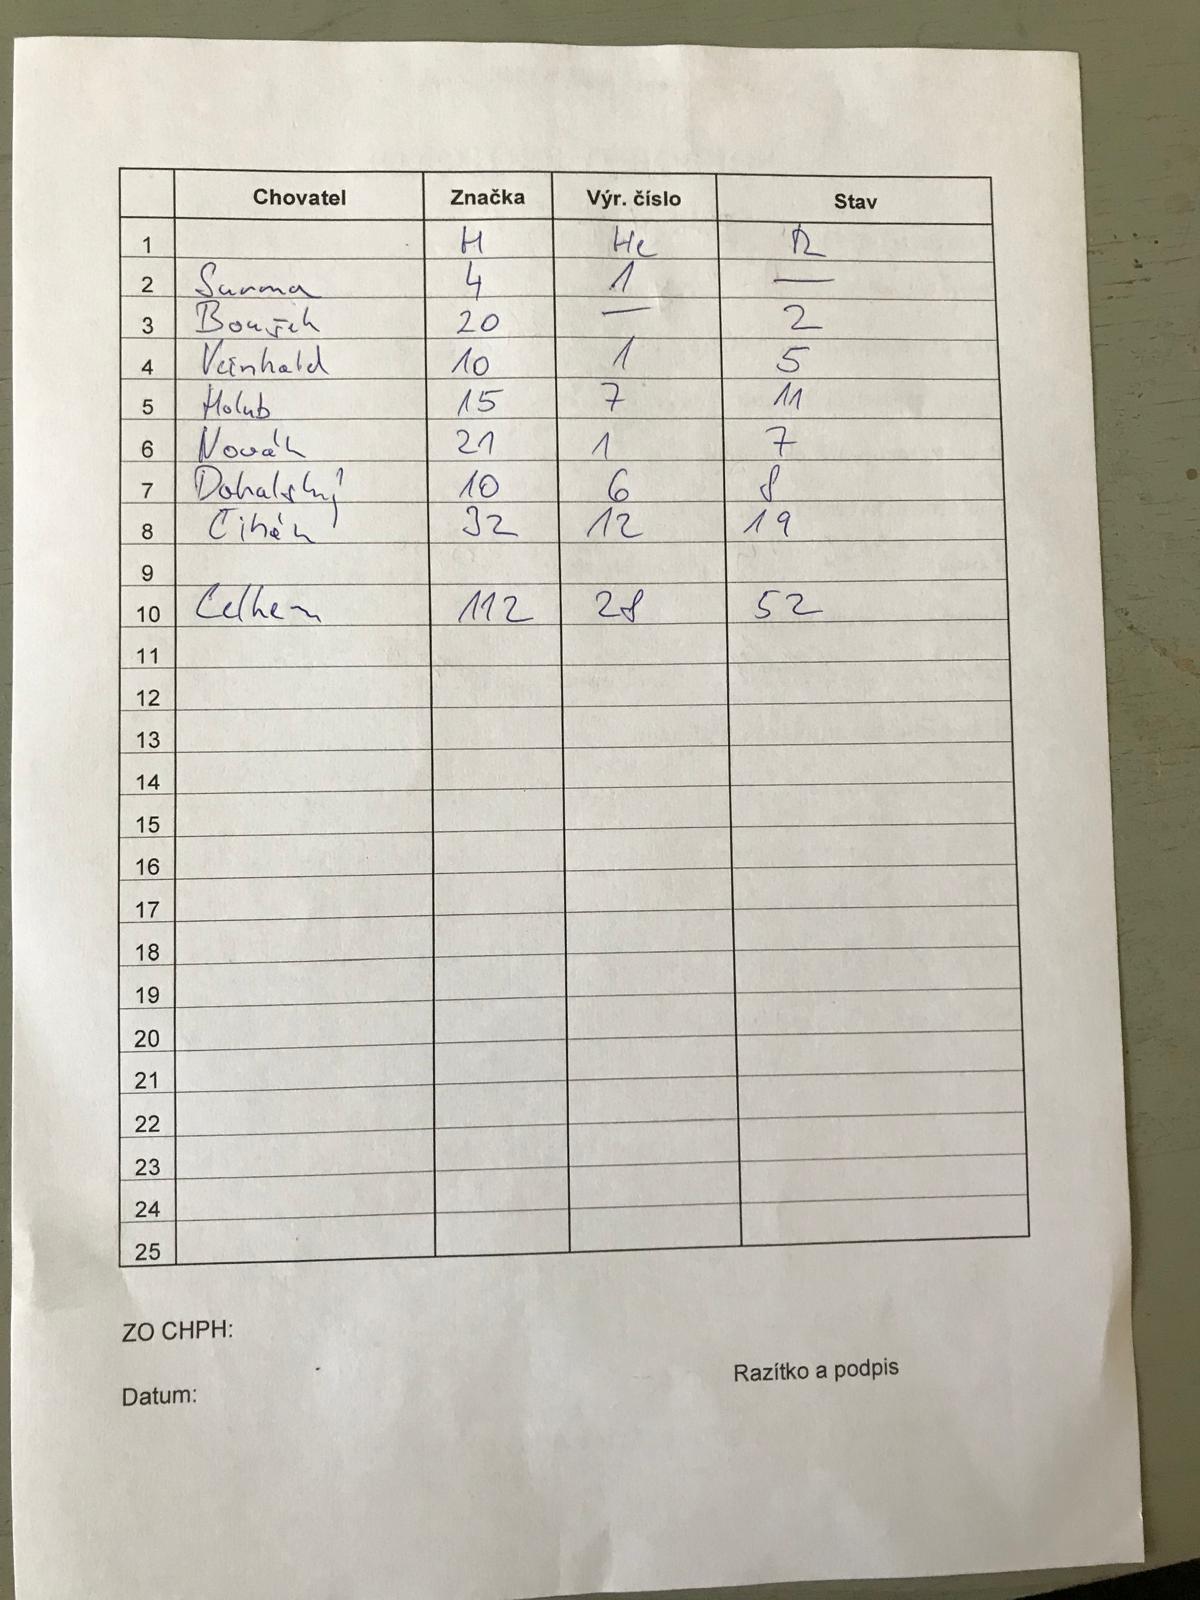 Chovatel Značka Výr. číslo Stav
1 H He R
2 Surma 4 1 —
3 20 — 2
4 Veinhald 10 1 5
5 Holub 15 7 11
6 Novák 21 1 7
7 Dohalský 10 6 8
8 Čihák 32 12 19
9
10 Celkem 112 28 52
11
12
13
14
15
16
17
18
19
20
21
22
23
24
25
ZO CHPH:
Razítko a podpis
Datum: